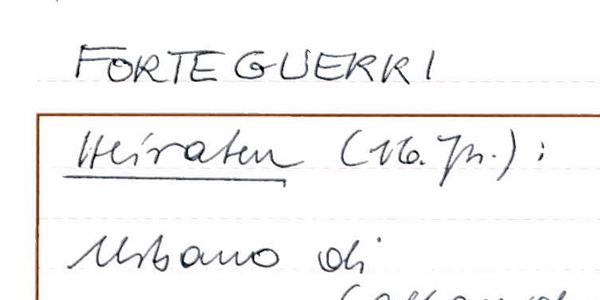 FORTEGUERRI
Heiraten (16. Jh.):
Urbano di